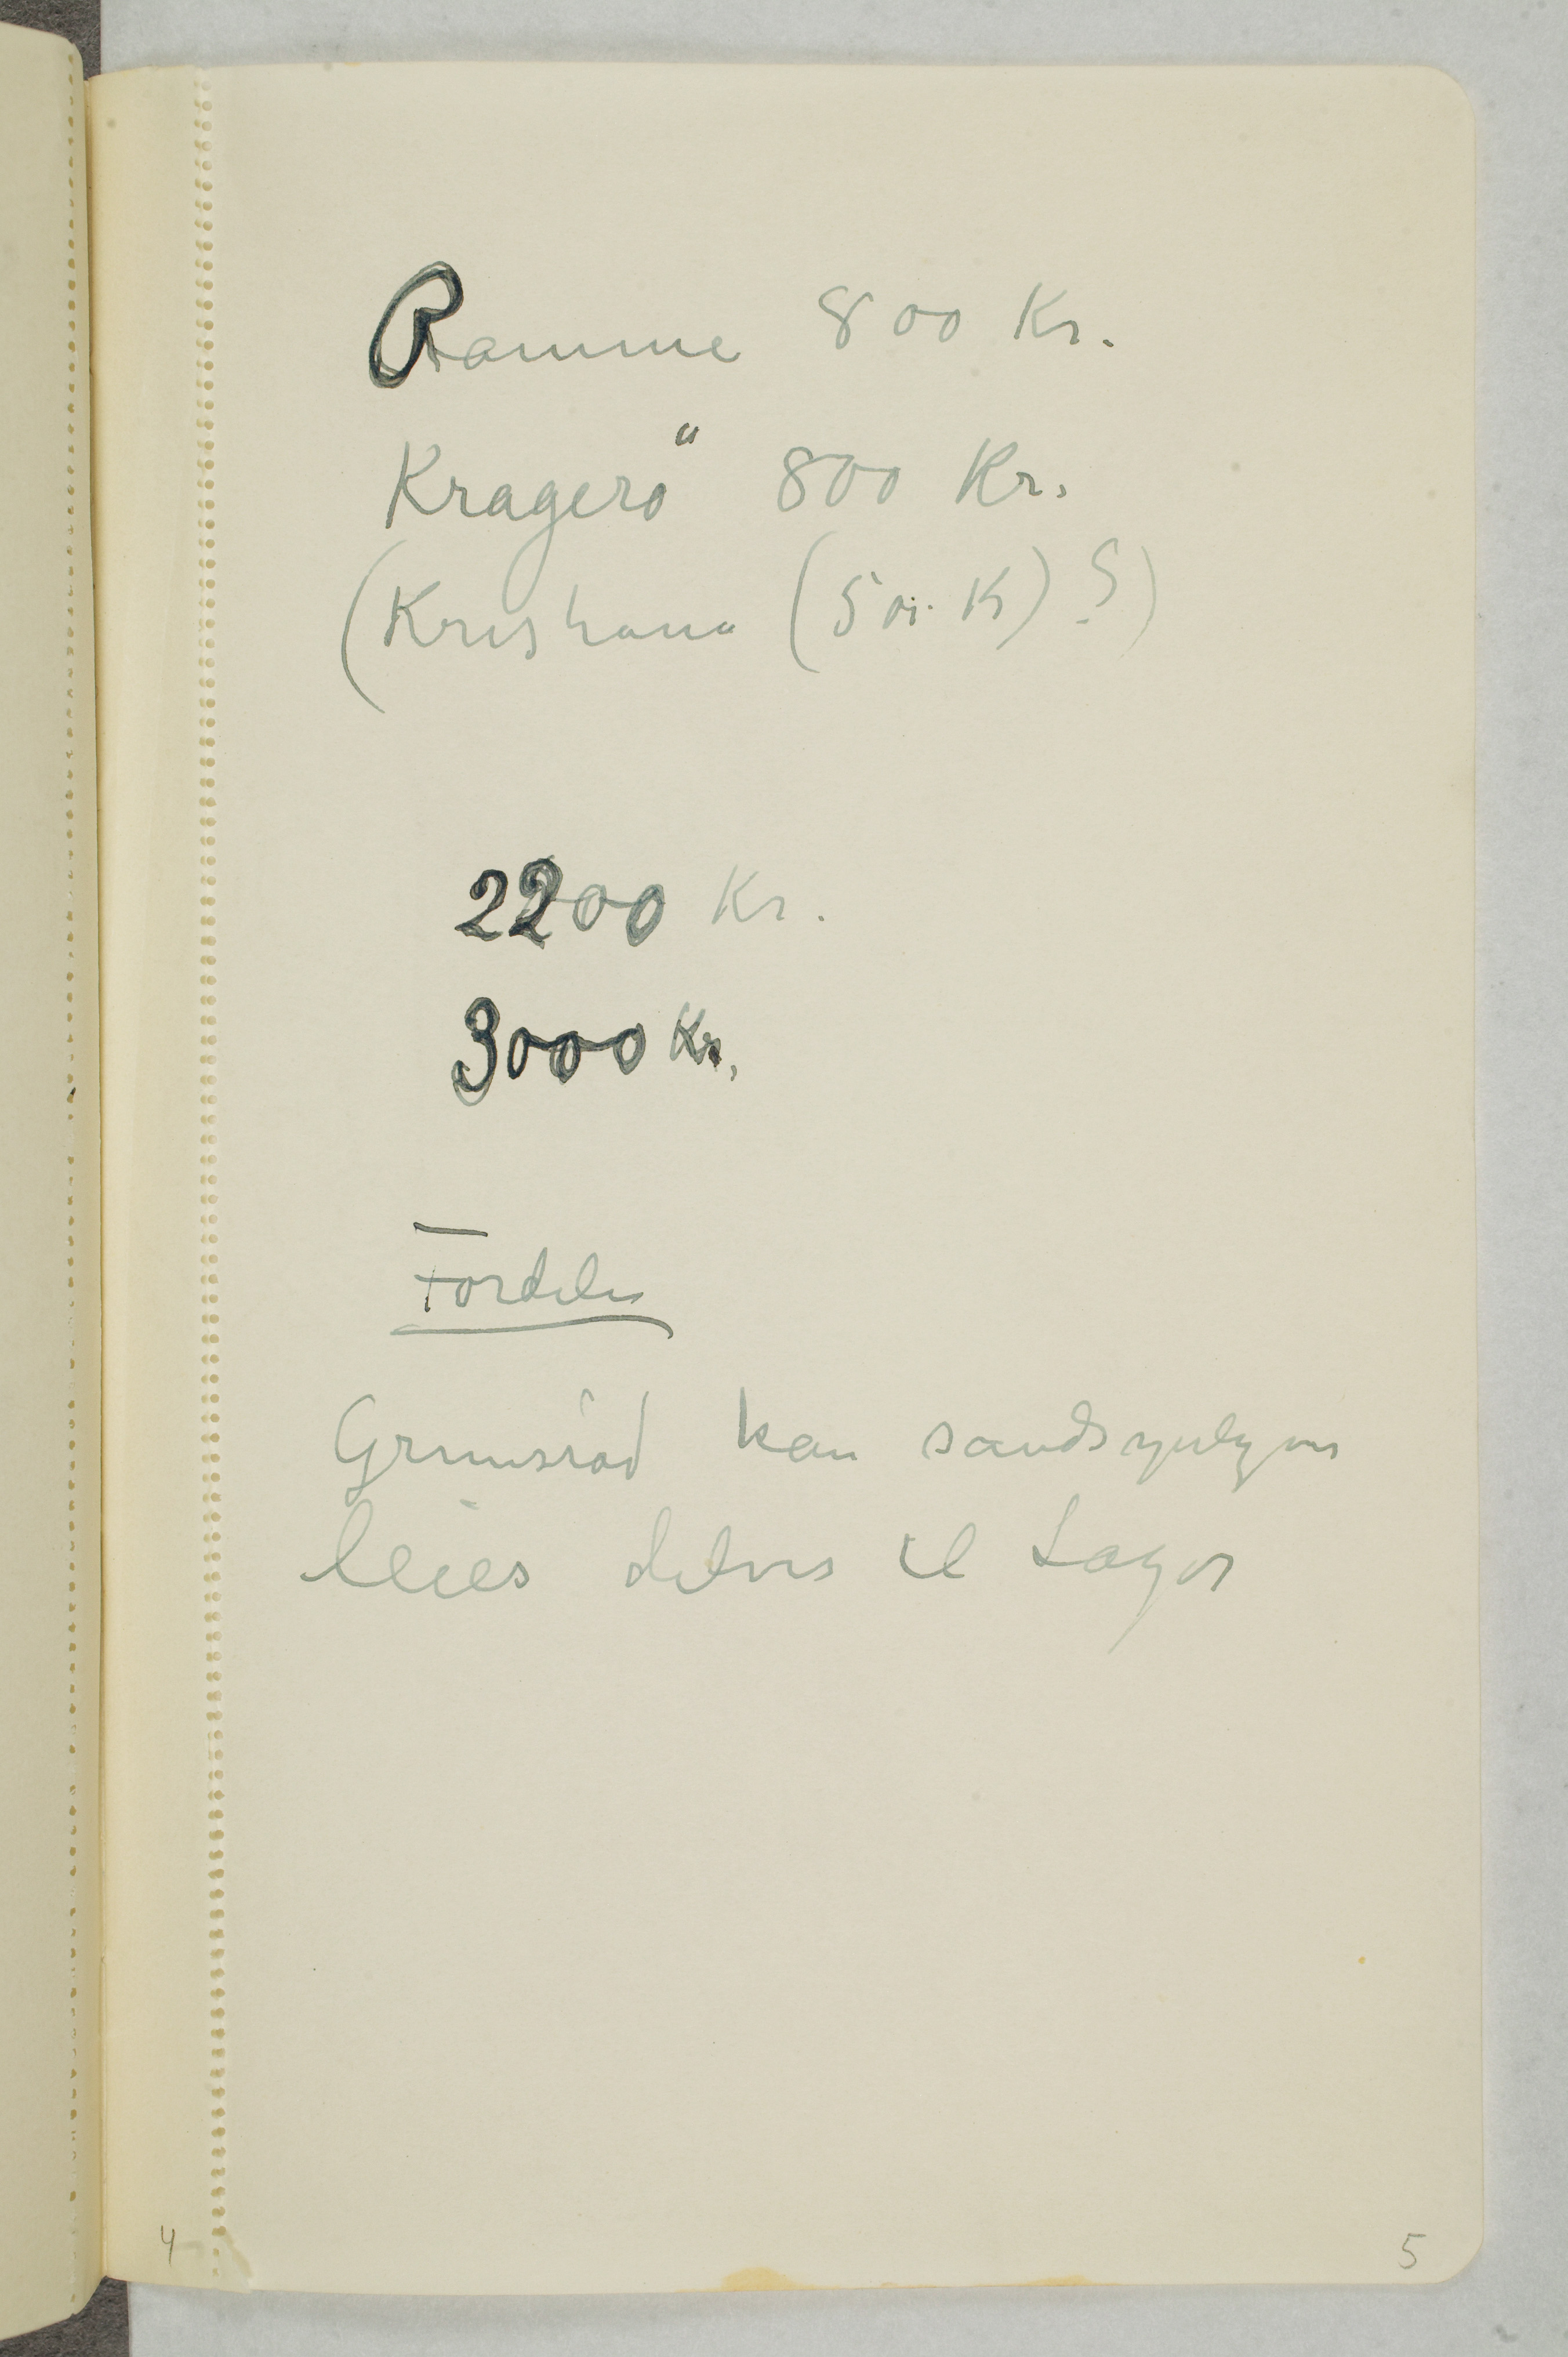 Ramme 800 Kr.
Kragerö 800 Kr.
(Kristiania (500 K) ?)
2200 Kr.
3000 Kr.
Fordele
Grimsröd kan sandsynligvis
leies delvis til Lager
4
5